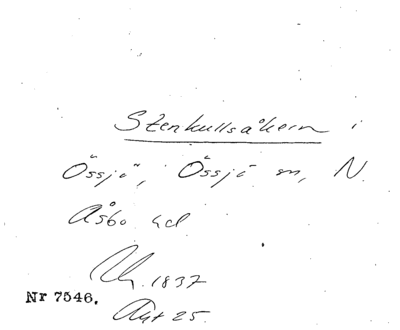 Stenkullsåkern i
Össjö, Össjö sn, N.
Åsbo hd
1837
Nr 7546. Akt 25.